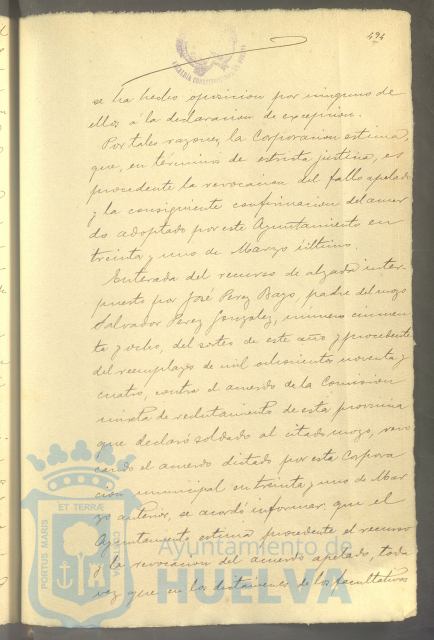 494
se ha hecho oposicion por ninguno de
ellos á la declaracion de excepcion.
Por tales razones, la Corporacion estima,
que, en términos de estricta justicia, es
procedente la revocacion del fallo apelado
y la consiguiente confirmacion del acuer
do adoptado por este Ayuntamiento en
treinta y uno de Marzo último.
Enterada del recurso de alzada inter
puesto por José Perez Bayo, padre del mozo
Salvador Perez Gonzalez, numero cincuen
ta y ocho, del sorteo de este año y procedente
del reemplazo de mil ochocientos noventa y
cuatro, contra el acuerdo de la Comision
mixta de reclutamiento de esta provincia
que declaró soldado al citado mozo, revo
cando el acuerdo dictado por esta Corpora
cion municipal en treinta y uno de Mar
zo anterior, se acordó informar: que el
Ayuntamiento estima procedente el recurso
y la revocacion del acuerdo apelado, toda
vez que en los dictámenes de los facultativos
PORTUS MARIS
ET TERRÆ
Ayuntamiento de
HUELVA